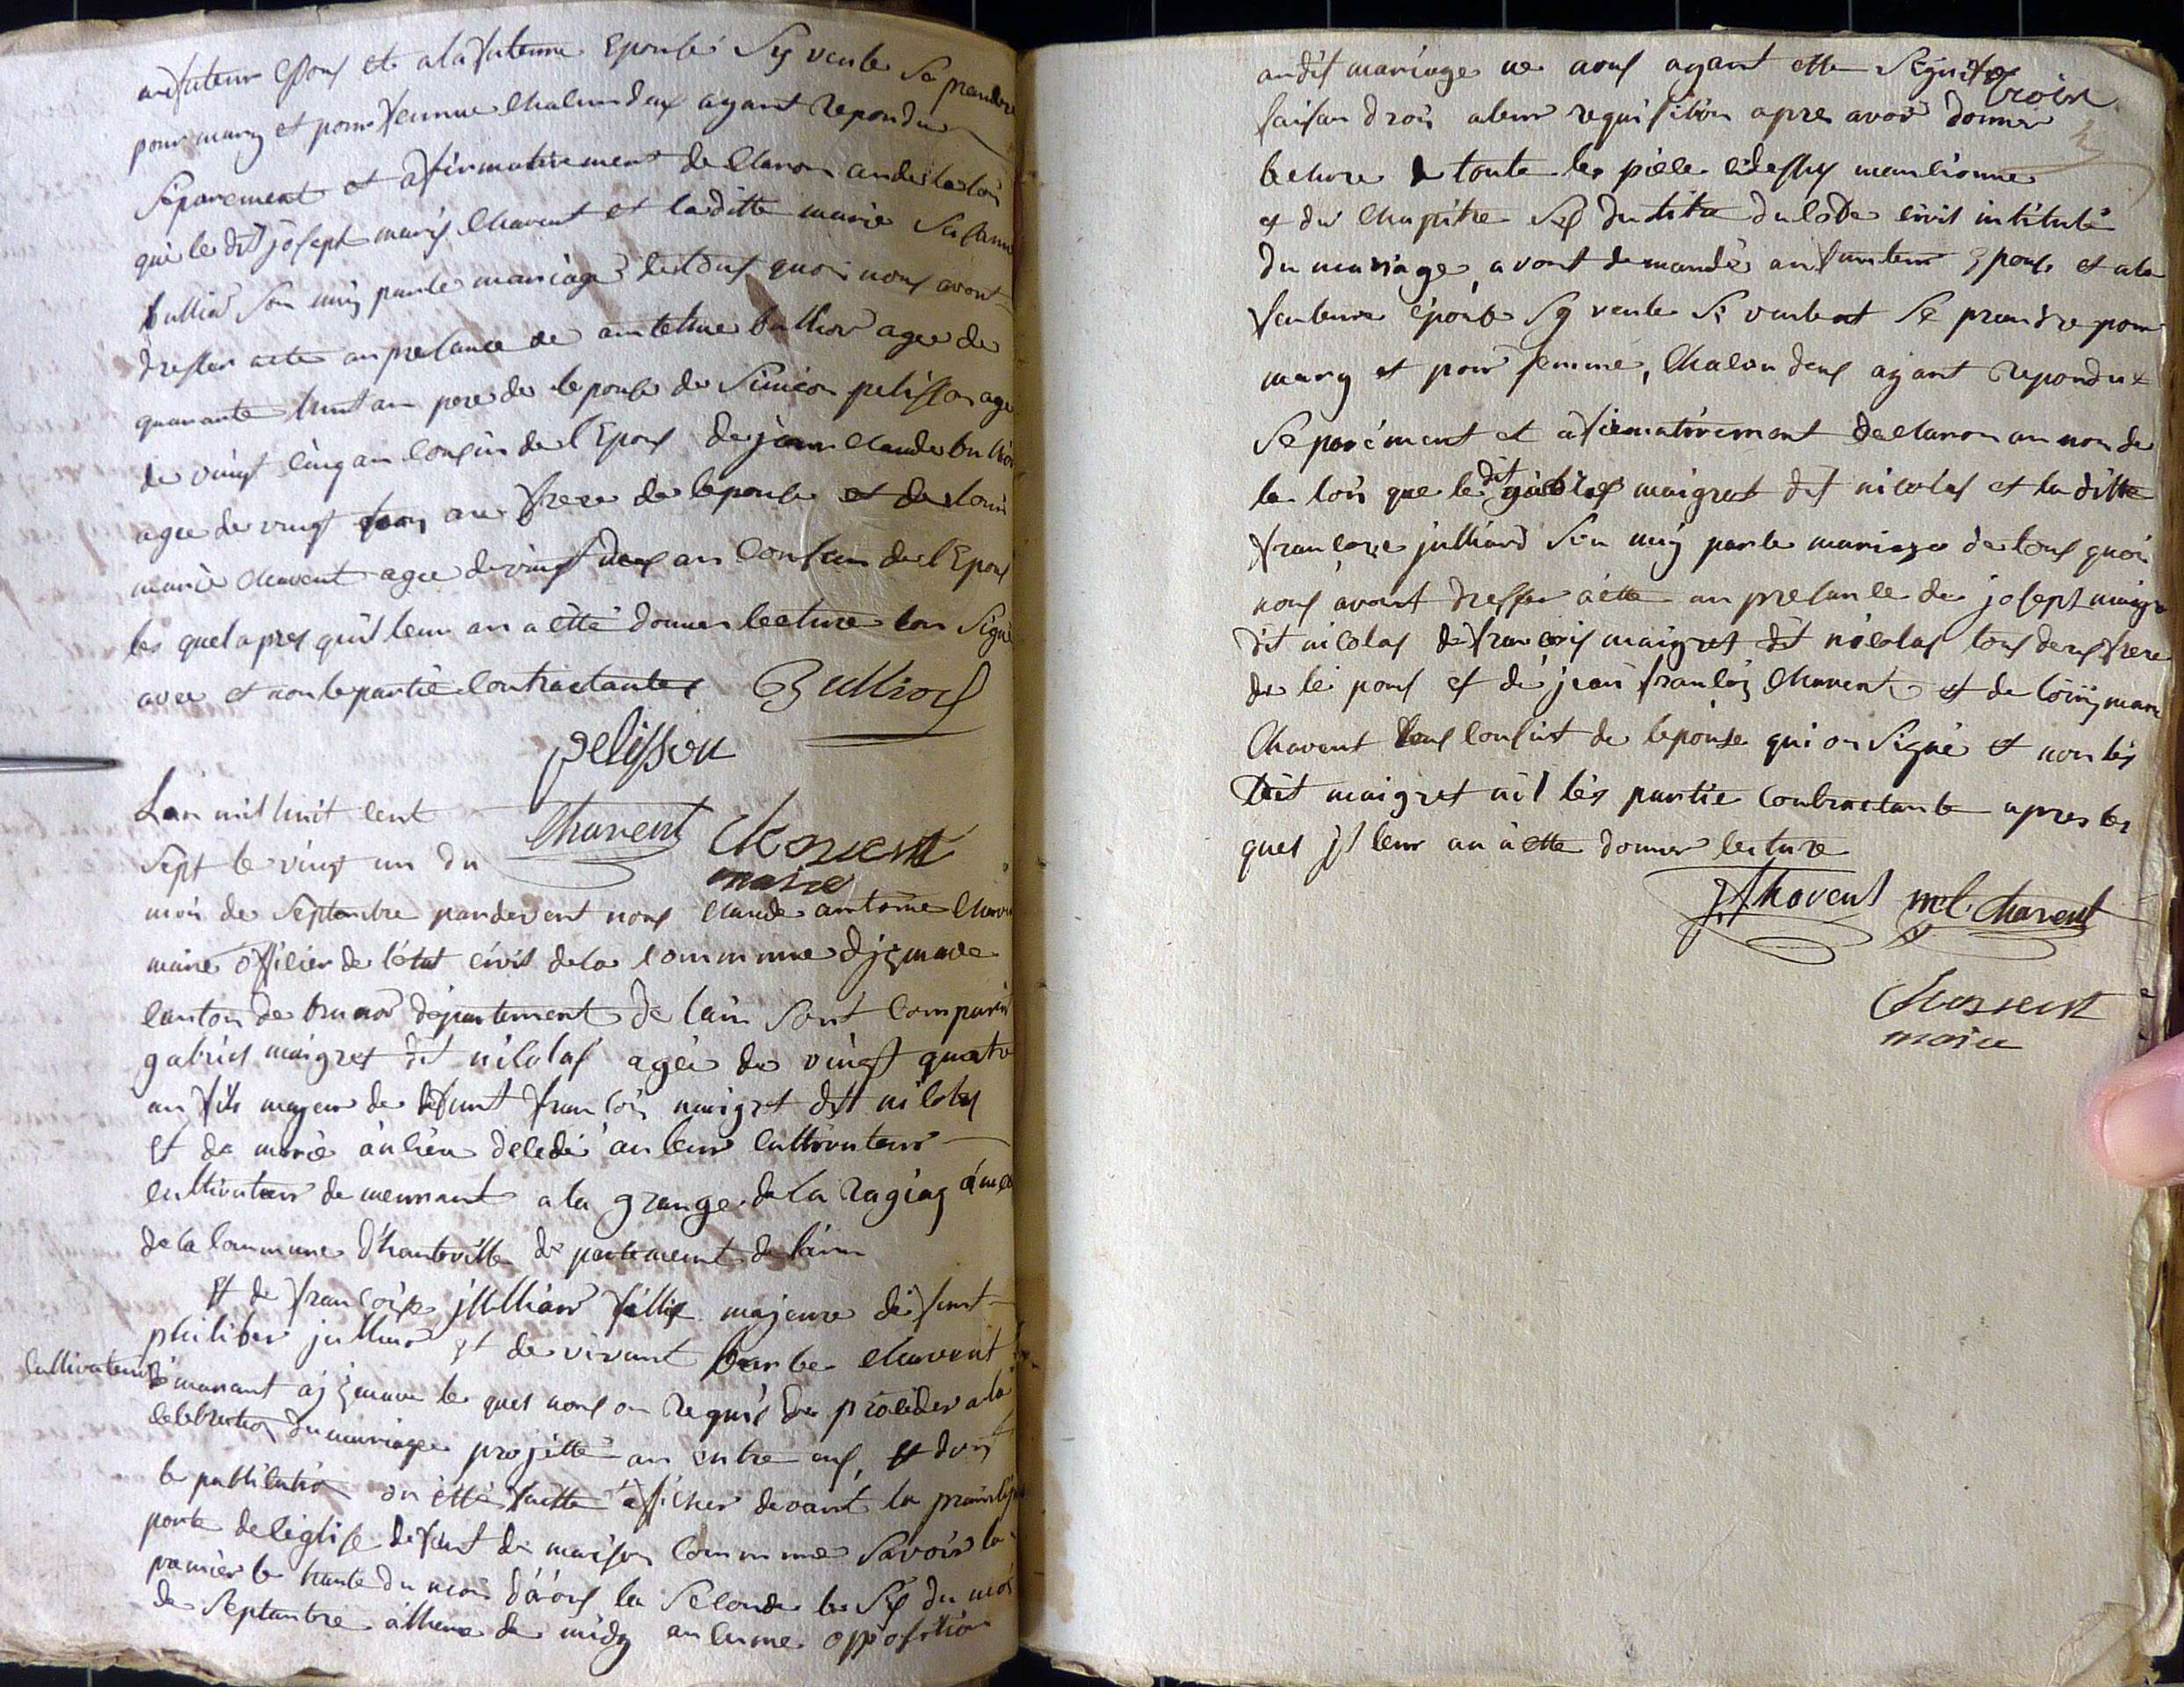 au futeur Epous et a la futeure Epouse Sy veule Se prendre
pour mary et pour femme Chalun deux ayant repondu
Séparement et afirmativement declaron au de la loi
que le dit joseph marie Chavent et la ditte marie
bulliod Son uniy par le mariage de tous quoi nous avont
dresser acte an presance de antelme bulliod agee de
quarante huit an pere de lepouse de Simeon pelisson age
de vingt cinq an cousin de l'Epous de jean claude bulliod
agee de vingt an frere de lepouse et de louis
marie chavent agee de vingt deux an Cousin de l'Epous
les quel apres quil leur an a etté donner lecture on Signé
avec et non le partie Contractantes Bulliod
pelisson
Chavent Chavent
maire
Lan mil huit cent
Sept le vingt un du
mois de Septembre pardevent nous claude antoine Chavent
maire officier de l'état civil de la commune djzenave
canton de brenod département de lain Sont Comparu
gabriel maigret dit nicolas agée de vingt quatre
an fils mageur de defunt francois maigret dit nicolas
et de marie cultivateur
cultivateur demeurant a la grange de la
de la Commune d'hauteville département de lain
Et de francoise julliard fillie majeure de funt
philiber julliard et de vivant barbe chavent
cultivateur demeurant a jzenave les quel nous on requis de proceder a la
celebration du mariage projetté an entre eux, et dont
le publication on étté faitte aficher devant la prinsipale
porte de leglise defaut de maison Commune Savoir la
pramier le trante du mois d'aous la Seconde le Six du mois
de Septambre a lheure de midy aucune opposition
au dit mariage ne nous ayant ette Segnifié
trois
faisan droit a leur requisition apres avoir donner
lecture de toute les piece cidessus mantionne
et du Chapitre Six du titre du Code civil intitulé
du mariage, avont demandé au futeur Epous et a la
futeure épouse Sy veule Si veulent Se prandre pour
mary et pour femme, Chalun deux ayant repondu
Separément et afirmativement declaron au non de
la loi que le dit gabriel maigret dit nicolas et la ditte
francoise julliard Son uniy par le mariage de tous quoi
nous avont dresser acte an presance de joseph maigret
dit nicolas de francois maigret dit nicolas tous deux frere
de le pous et de jean francois Chavent et de louis marie
Chavent tous cousint de lepouse qui on Signé et non les
dit maigret nil les partie Contractante apres les
quel jl leur an a ette donner lecture
jf Chavent ml Chavent
Chavent
maire